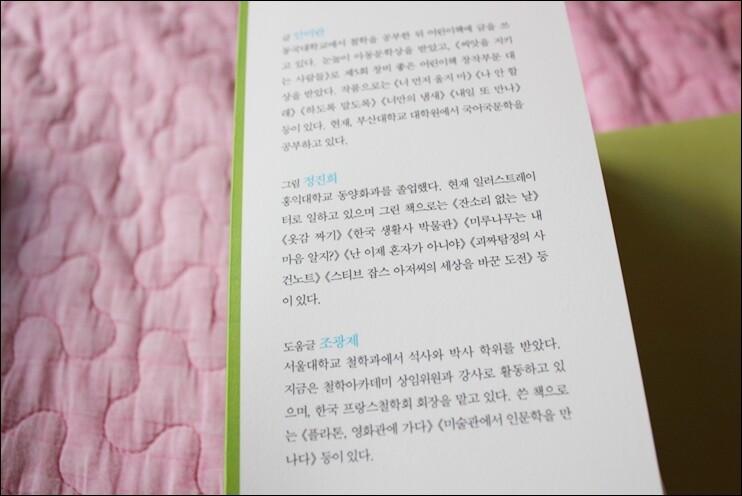 글 안미란
동국대학교에서 철학을 공부한 뒤 어린이책에 글을 쓰
고 있다. 눈높이 아동문학상을 받았고, 《씨앗을 지키
는 사람들》로 제5회 창비 좋은 어린이책 창작부문 대
상을 받았다. 작품으로는 《너 먼저 울지 마》 《나 안 할
래》 《하도록 말도록》 《너만의 냄새》 《내일 또 만나》
등이 있다. 현재, 부산대학교 대학원에서 국어국문학을
공부하고 있다.
그림 정진희
홍익대학교 동양화과를 졸업했다. 현재 일러스트레이
터로 일하고 있으며 그린 책으로는 《잔소리 없는 날》
《옷감 짜기》 《한국 생활사 박물관》 《미루나무는 내
마음 알지?》 《난 이제 혼자가 아니야》 《괴짜탐정의 사
건노트》 《스티브 잡스 아저씨의 세상을 바꾼 도전》 등
이 있다.
도움글 조광제
서울대학교 철학과에서 석사와 박사 학위를 받았다.
지금은 철학아카데미 상임위원과 강사로 활동하고 있
으며, 한국 프랑스철학회 회장을 맡고 있다. 쓴 책으로
는 《플라톤, 영화관에 가다》 《미술관에서 인문학을 만
나다》 등이 있다.